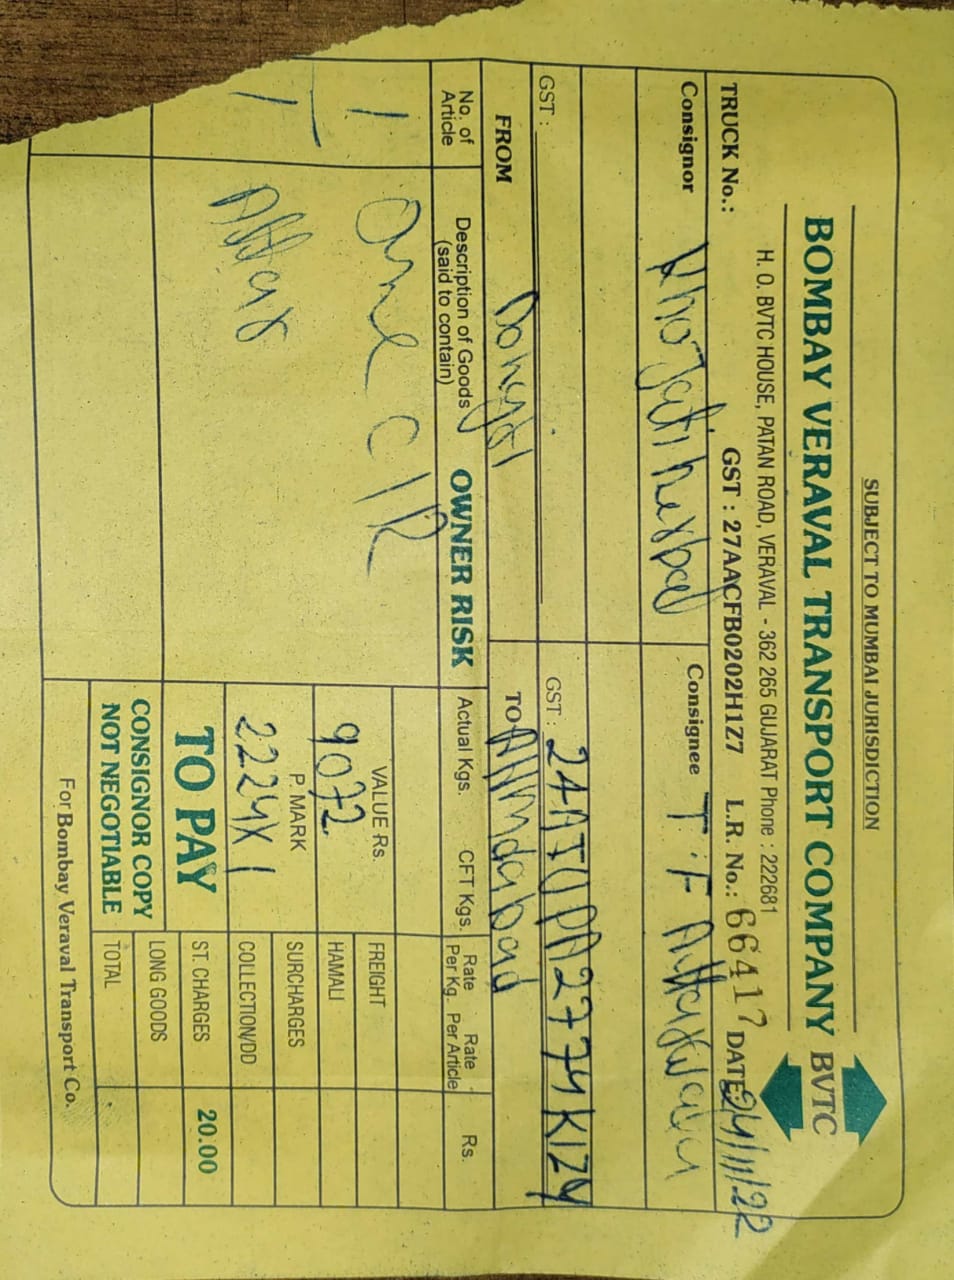 SUBJECT TO MUMBAI JURISDICTION
BOMBAY VERAVAL TRANSPORT COMPANY BVTC
H. O. BVTC HOUSE, PATAN ROAD, VERAVAL - 362 265 GUJARAT Phone : 222681
TRUCK No.: GST : 27AACFB0202H1Z7 L.R. No.: 66417 DATE: 24/11/22
Consignor Consignee T.F
GST : GST : 24AJOPA2774K1ZY
FROM Dongri TO Ahmdabad
No. of Article Description of Goods (said to contain) OWNER RISK Actual Kgs. CFT Kgs. Rate Per Kg. Rate Per Article Rs.
1 One C/R
VALUE Rs. FREIGHT
9072 HAMALI
P. MARK SURCHARGES
1 Attar 2224X1 COLLECTION/DD
TO PAY ST. CHARGES 20.00
CONSIGNOR COPY LONG GOODS
NOT NEGOTIABLE TOTAL
For Bombay Veraval Transport Co.